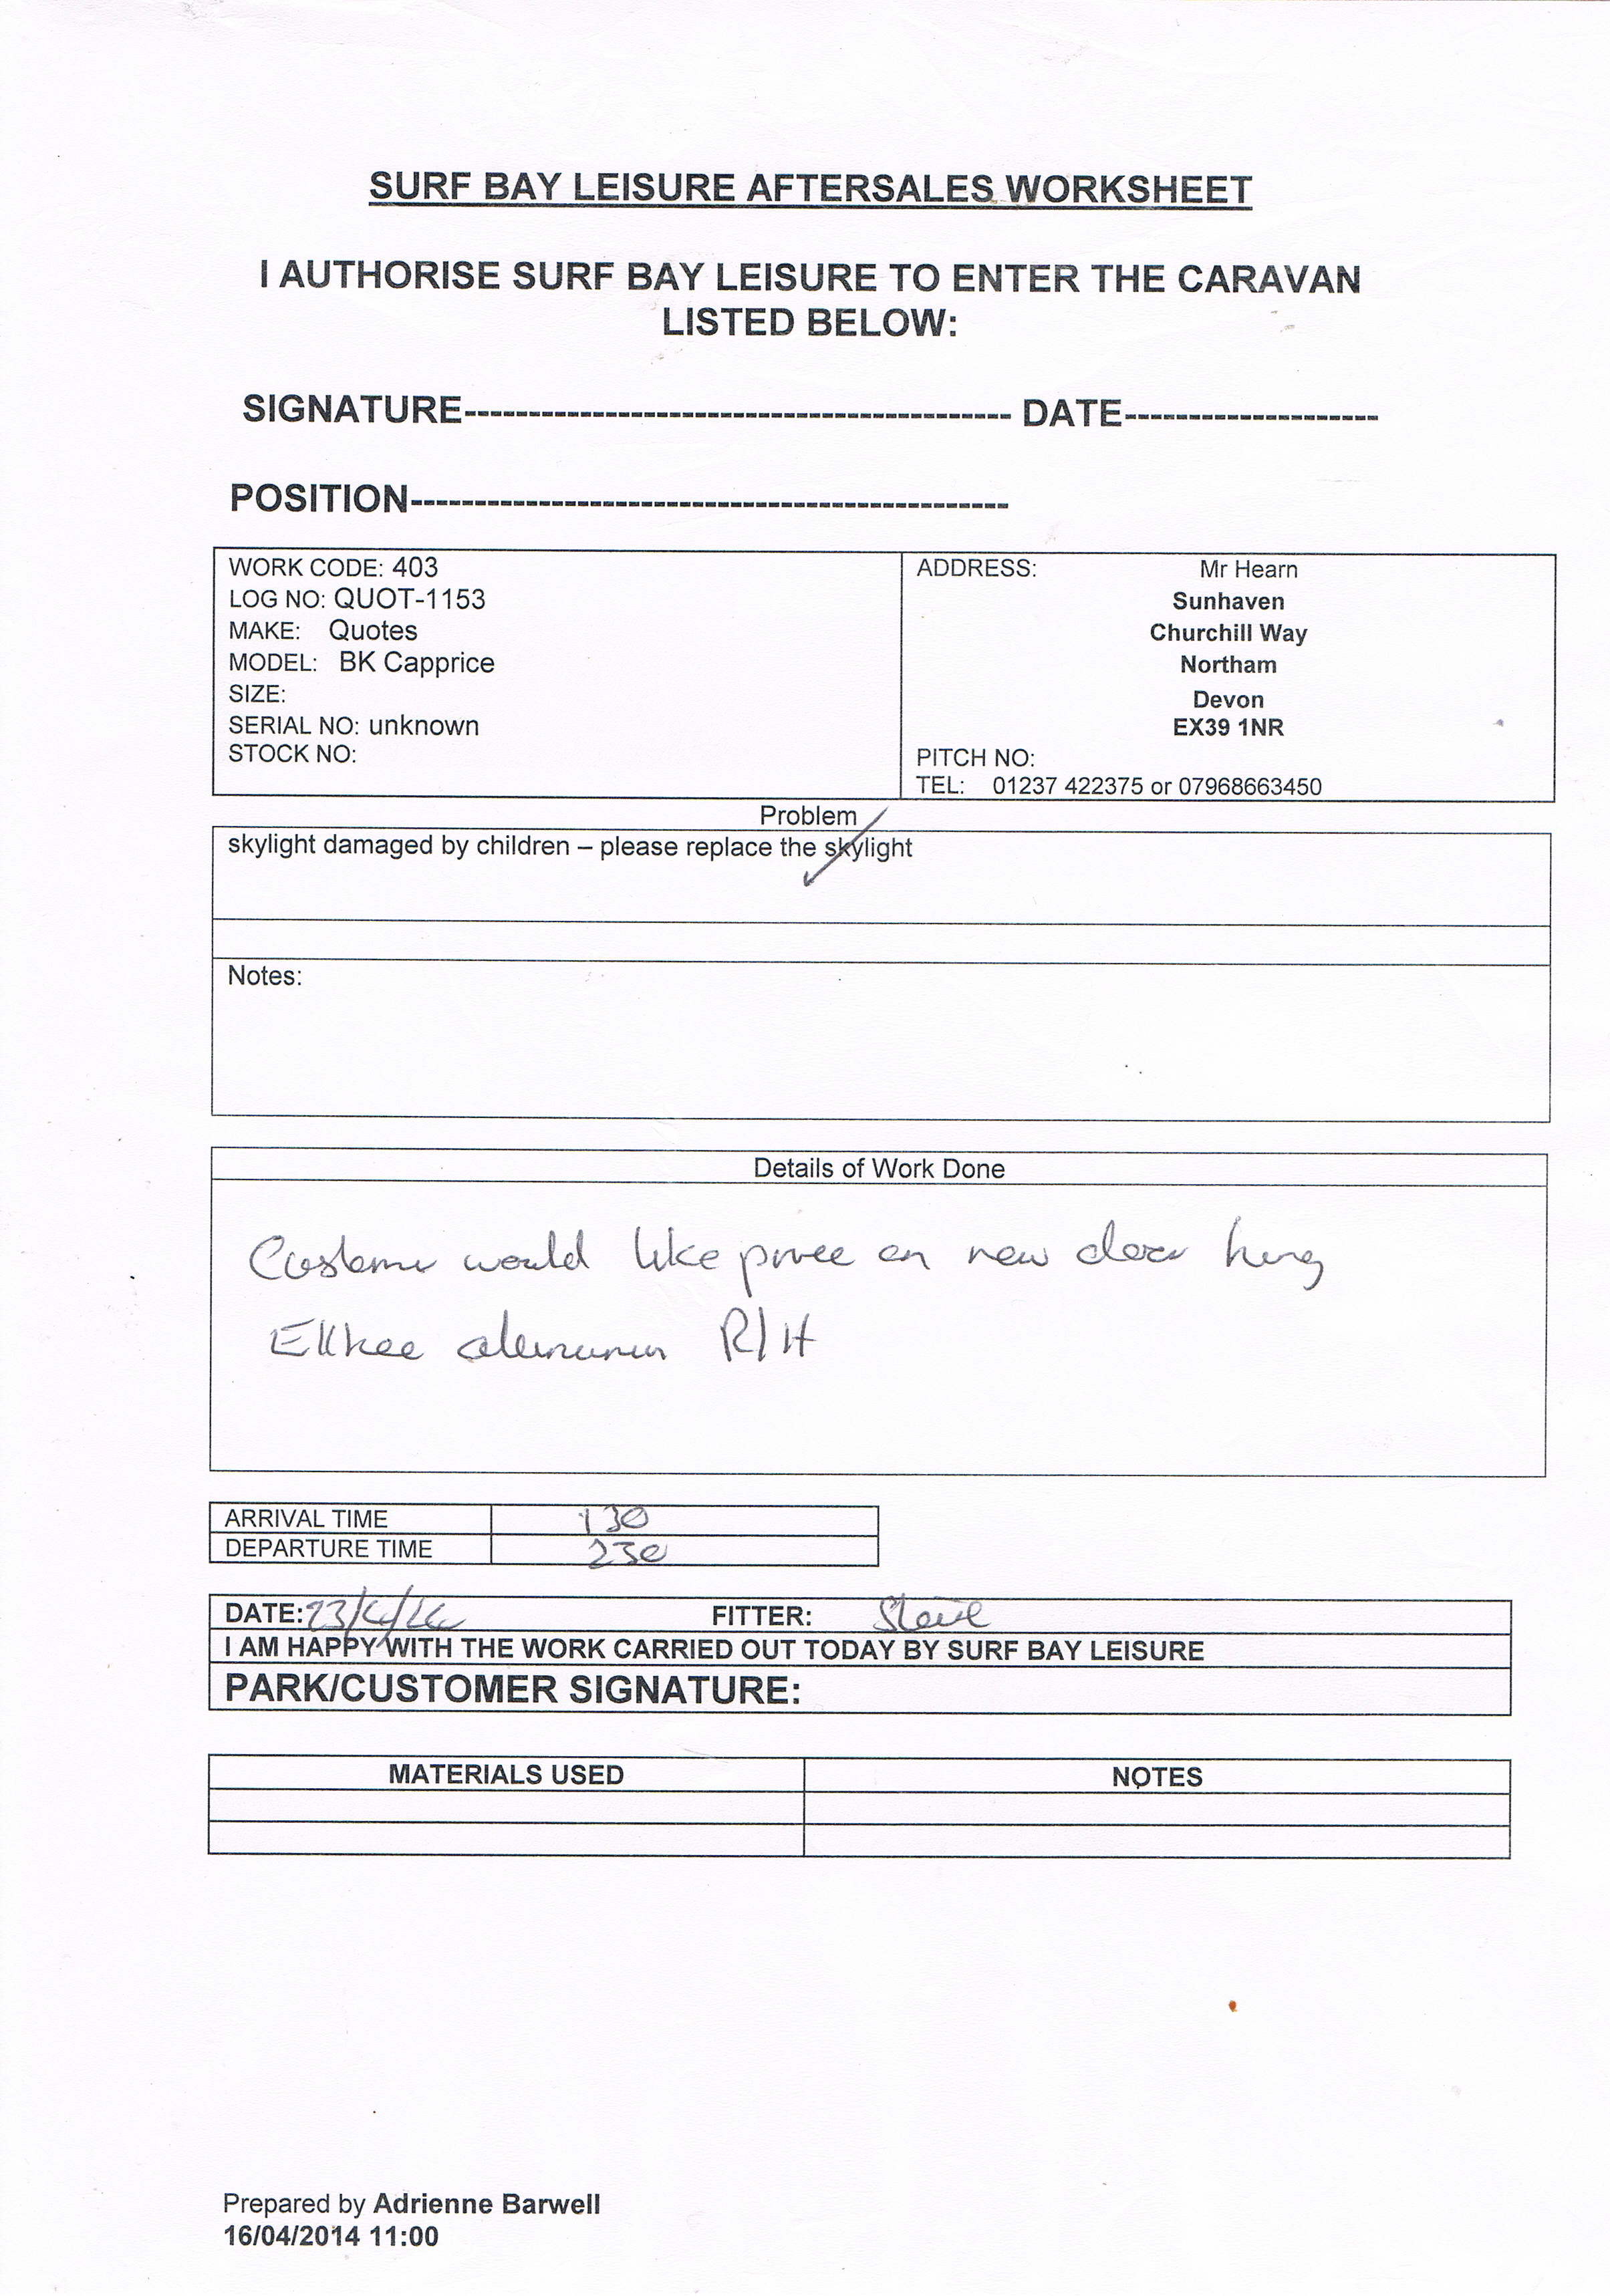 SURF BAY LEISURE AFTERSALES WORKSHEET
I AUTHORISE SURF BAY LEISURE TO ENTER THE CARAVAN
LISTED BELOW:
SIGNATURE------------------------------------------- DATE--------------------
POSITION-----------------------------------------------
WORK CODE: 403
LOG NO: QUOT-1153
MAKE: Quotes
MODEL: BK Capprice
SIZE:
SERIAL NO: unknown
STOCK NO:
ADDRESS: Mr Hearn
Sunhaven
Churchill Way
Northam
Devon
EX39 1NR
PITCH NO:
TEL: 01237 422375 or 07968663450
Problem
skylight damaged by children – please replace the skylight
Notes:
Details of Work Done
Customer would like price on new door hung
R/H
ARRIVAL TIME 130
DEPARTURE TIME 230
DATE: 23/4/14 FITTER: Steve
I AM HAPPY WITH THE WORK CARRIED OUT TODAY BY SURF BAY LEISURE
PARK/CUSTOMER SIGNATURE:
MATERIALS USED NOTES
Prepared by Adrienne Barwell
16/04/2014 11:00